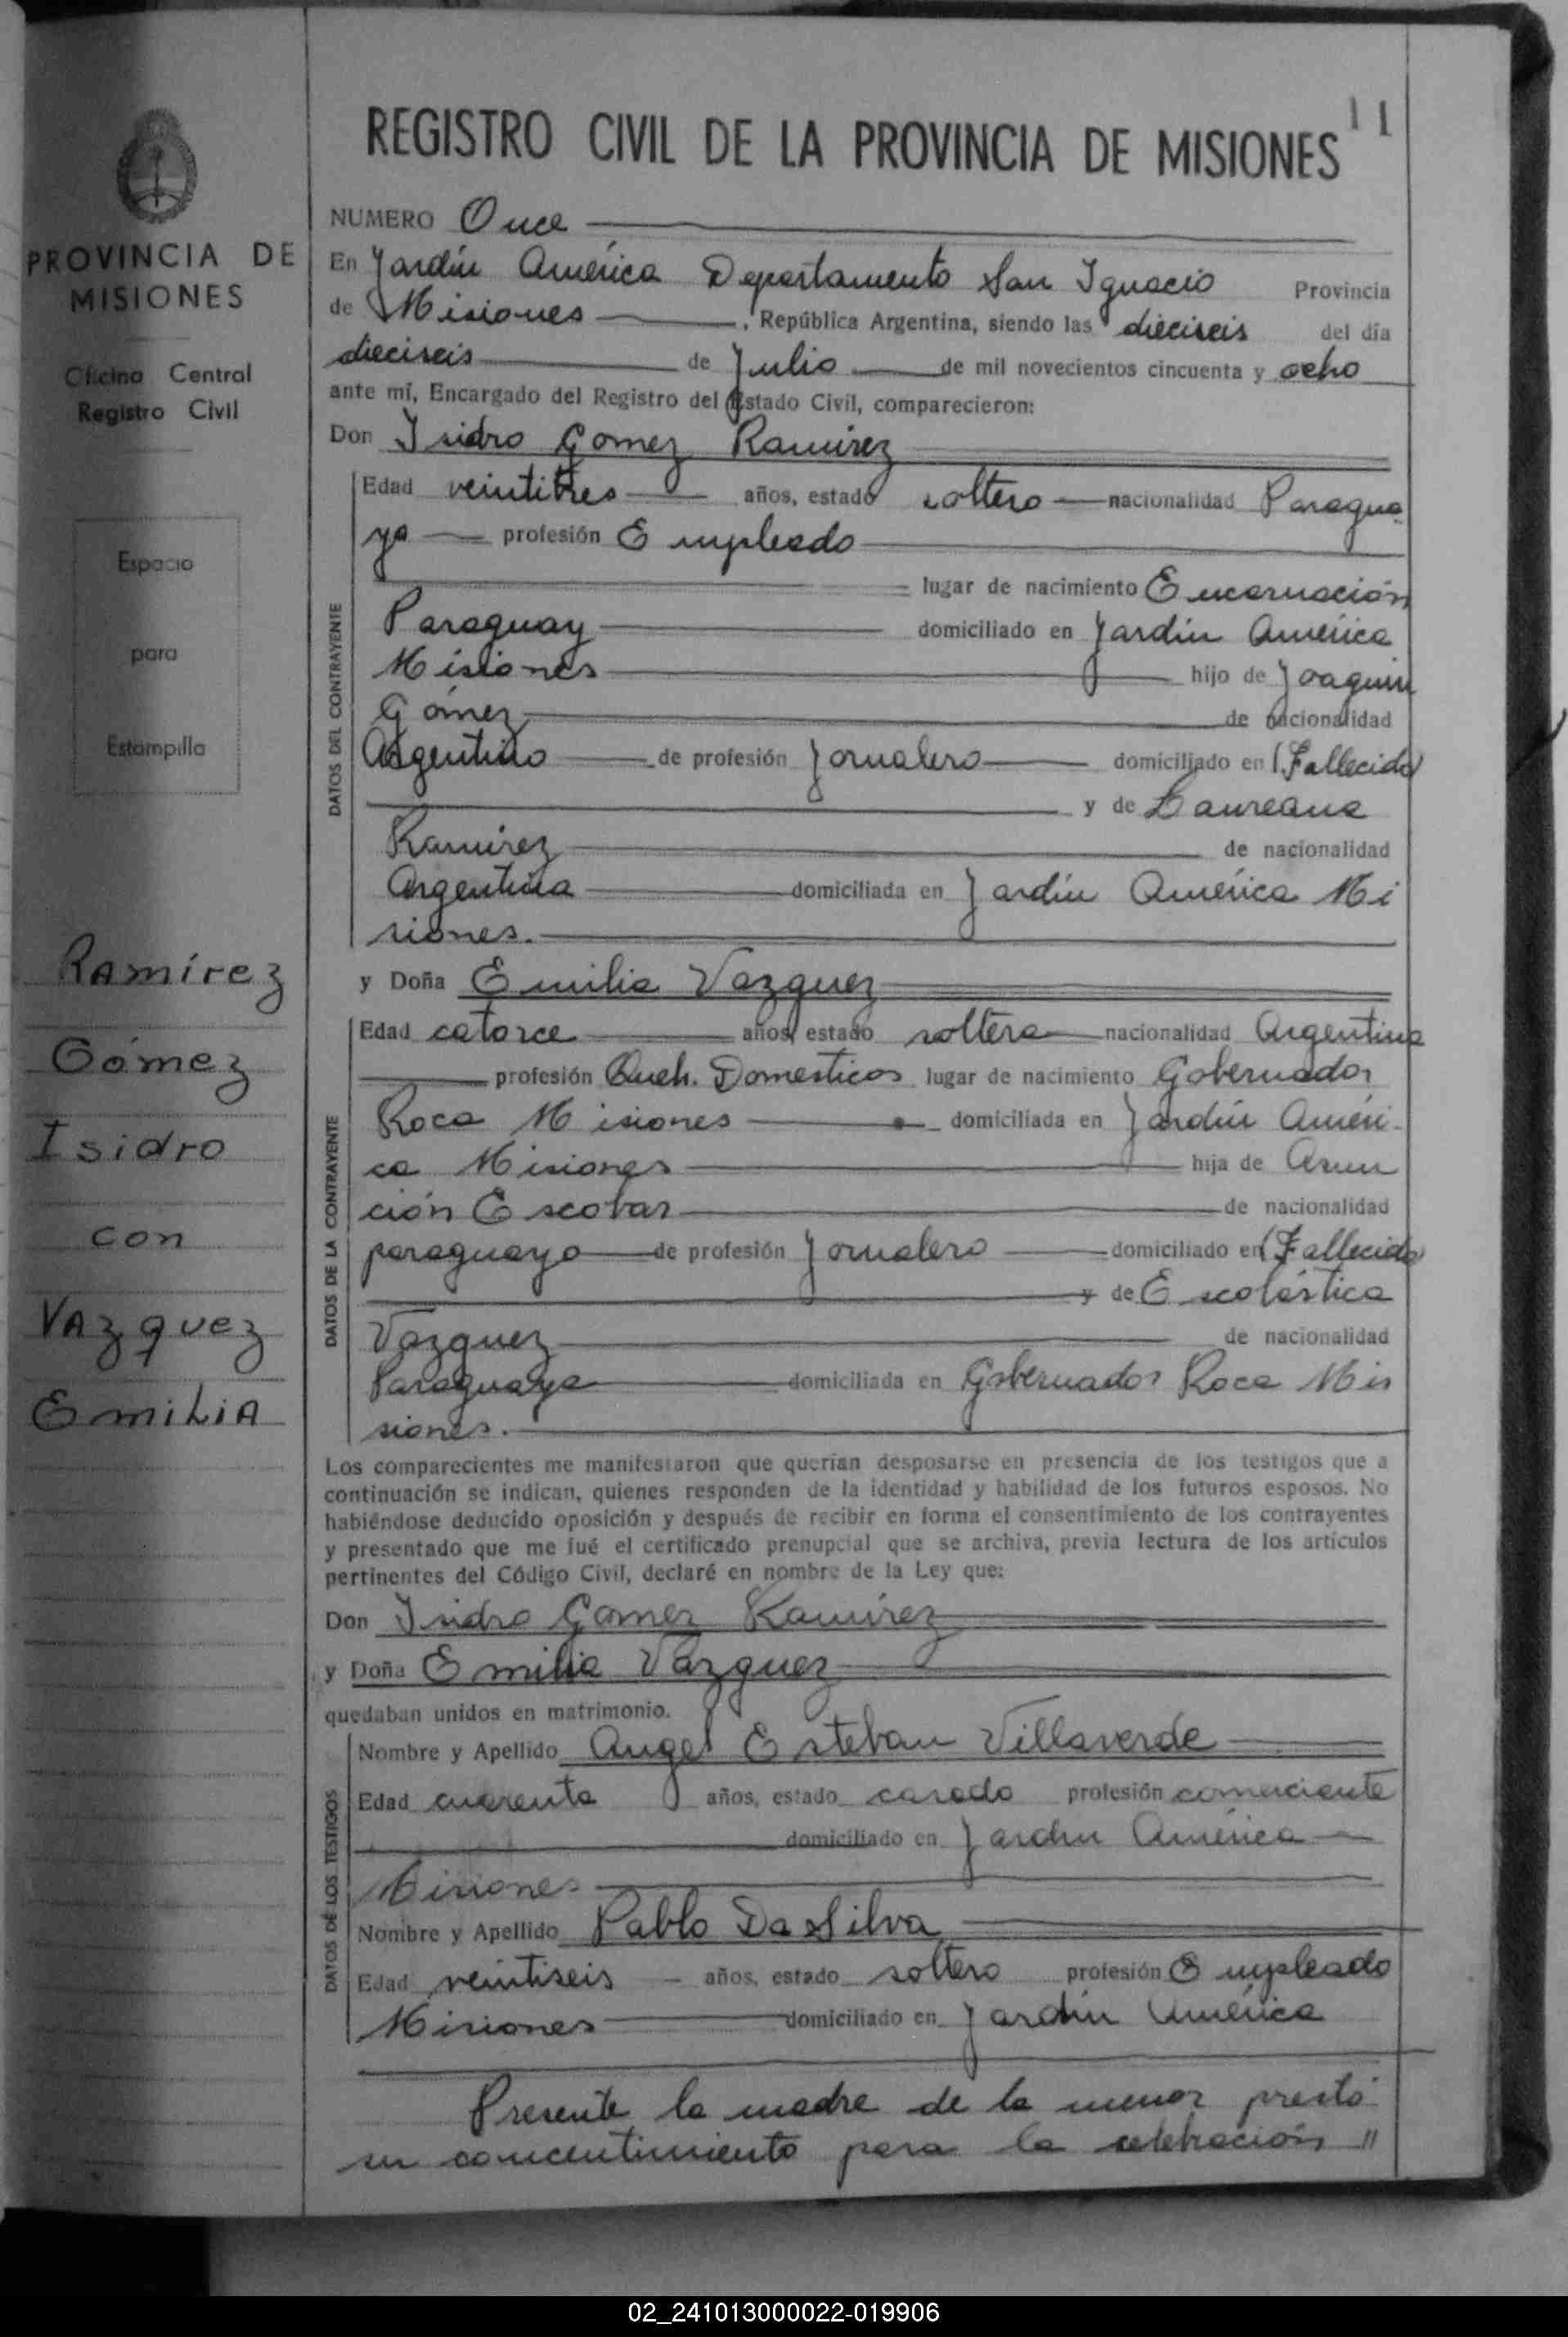 11
REGISTRO CIVIL DE LA PROVINCIA DE MISIONES
PROVINCIA DE
MISIONES
Oficina Central
Registro Civil
Espacio
para
Estampilla
Ramírez
Gómez
Isidro
con
Vazquez
Emilia
NUMERO Once
En Jardín América Departamento San Ignacio Provincia
de Misiones, República Argentina, siendo las dieciseis del día
dieciseis de Julio de mil novecientos cincuenta y ocho
ante mí, Encargado del Registro del Estado Civil, comparecieron:
Don Isidro Gomez Ramirez
DATOS DEL CONTRAYENTE
Edad veintitres años, estado soltero nacionalidad Paragua
ya profesión Empleado
lugar de nacimiento Encarnación
Paraguay domiciliado en Jardín América
Misiones hijo de Joaquin
Gómez de nacionalidad
Argentino de profesión Jornalero domiciliado en (Fallecido)
y de Laureana
Ramirez de nacionalidad
Argentina domiciliada en Jardín América Mi
siones.
y Doña Emilia Vazquez
DATOS DE LA CONTRAYENTE
Edad catorce años, estado soltera nacionalidad Argentina
profesión Queh. Domesticos lugar de nacimiento Gobernador
Roca Misiones domiciliada en Jardín Améri-
ca Misiones hija de Asun
ción Escobar de nacionalidad
paraguayo de profesión Jornalero domiciliado en (Fallecido
y de Escolástica
Vazquez de nacionalidad
Paraguaya domiciliada en Gobernador Roca Mis
siones.
Los comparecientes me manifestaron que querían desposarse en presencia de los testigos que a
continuación se indican, quienes responden de la identidad y habilidad de los futuros esposos. No
habiéndose deducido oposición y después de recibir en forma el consentimiento de los contrayentes
y presentado que me fué el certificado prenupcial que se archiva, previa lectura de los artículos
pertinentes del Código Civil, declaré en nombre de la Ley que:
Don Isidro Gomez Ramirez
y Doña Emilia Vazquez
quedaban unidos en matrimonio.
DATOS DE LOS TESTIGOS
Nombre y Apellido Angel Esteban Villaverde
Edad cuarenta años, estado casado profesión comerciante
domiciliado en Jardin América
Misiones
Nombre y Apellido Pablo Da Silva
Edad veintiseis años, estado soltero profesión Empleado
Misiones domiciliado en Jardín América
Presente la madre de la menor prestó
su concentimiento para la celebración "
02_241013000022-019906